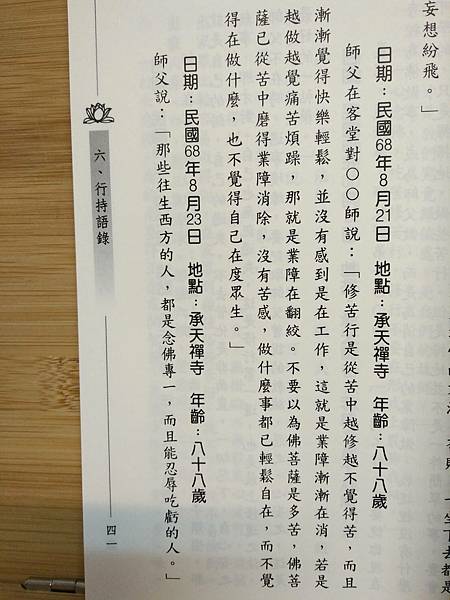 妄想紛飛。」
日期：民國68年8月21日　地點：承天禪寺　年齡：八十八歲
師父在客堂對○○師說：「修苦行是從苦中越修越不覺得苦，而且
漸漸覺得快樂輕鬆，並沒有感到是在工作，這就是業障漸漸在消，若是
越做越覺痛苦煩躁，那就是業障在翻絞。不要以為佛菩薩是多苦，佛菩
薩已從苦中磨得業障消除，沒有苦感，做什麼事都已輕鬆自在，而不覺
得在做什麼，也不覺得自己在度眾生。」
日期：民國68年8月23日　地點：承天禪寺　年齡：八十八歲
師父說：「那些往生西方的人，都是念佛專一，而且能忍辱吃虧的人。」
六、行持語錄
四一